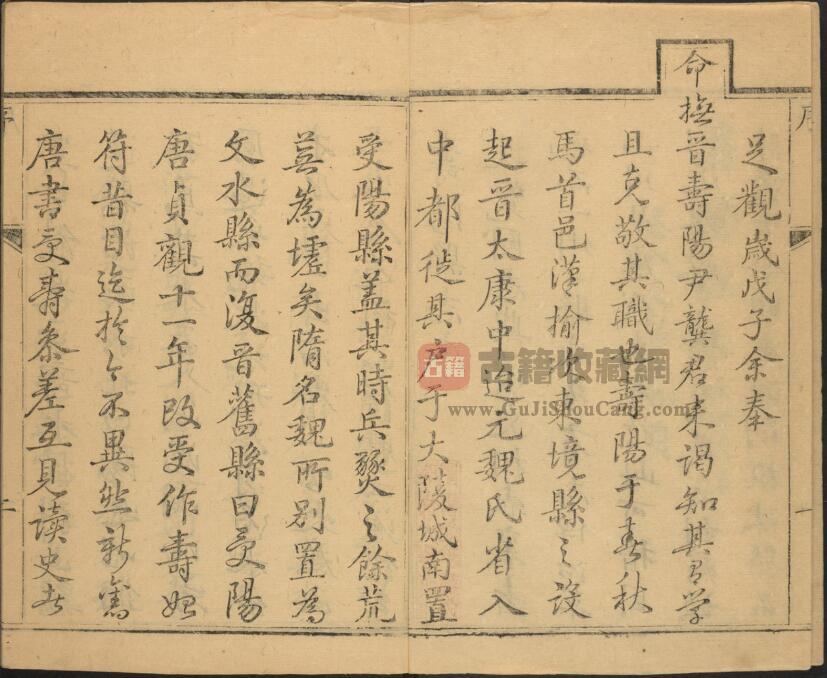 序
一
足觀歲戊子余奉
命撫晉壽陽尹龔君来謁知其有学
且克敬其職也壽陽于春秋
馬首邑漢榆次東境縣之設
起晉太康中迨元魏氏省入
中都徙其戶于大陵城南置
受陽縣蓋其時兵燹之餘荒
蕪為墟矣隋名魏所别置為
文水縣而復晉舊縣曰受陽
唐貞觀十一年改受作壽始
符昔目迄於今不異然新舊
唐書受壽叅差互見读史者
序
二
古籍
古籍收藏網
www.GuJiShouCang.com